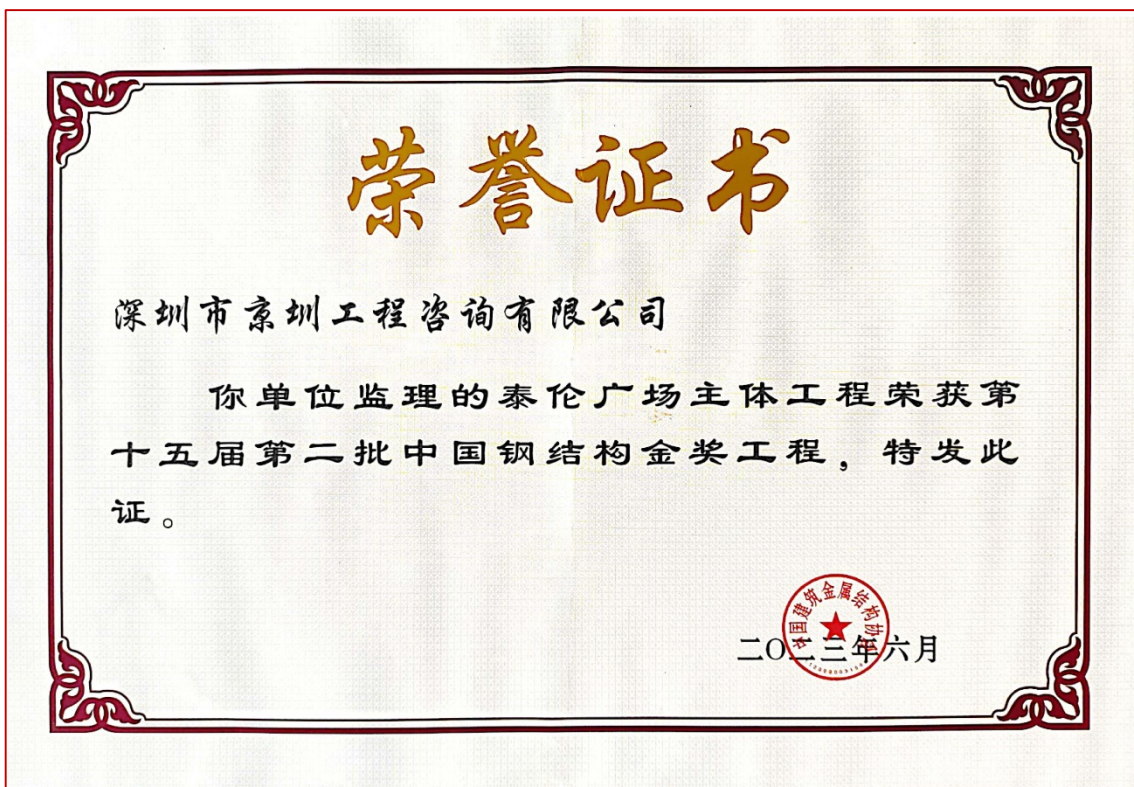 荣誉证书
深圳市京圳工程咨询有限公司
你单位监理的泰伦广场主体工程荣获第
十五届第二批中国钢结构金奖工程，特发此
证。
中国建筑金属结构协会
二〇二三年六月